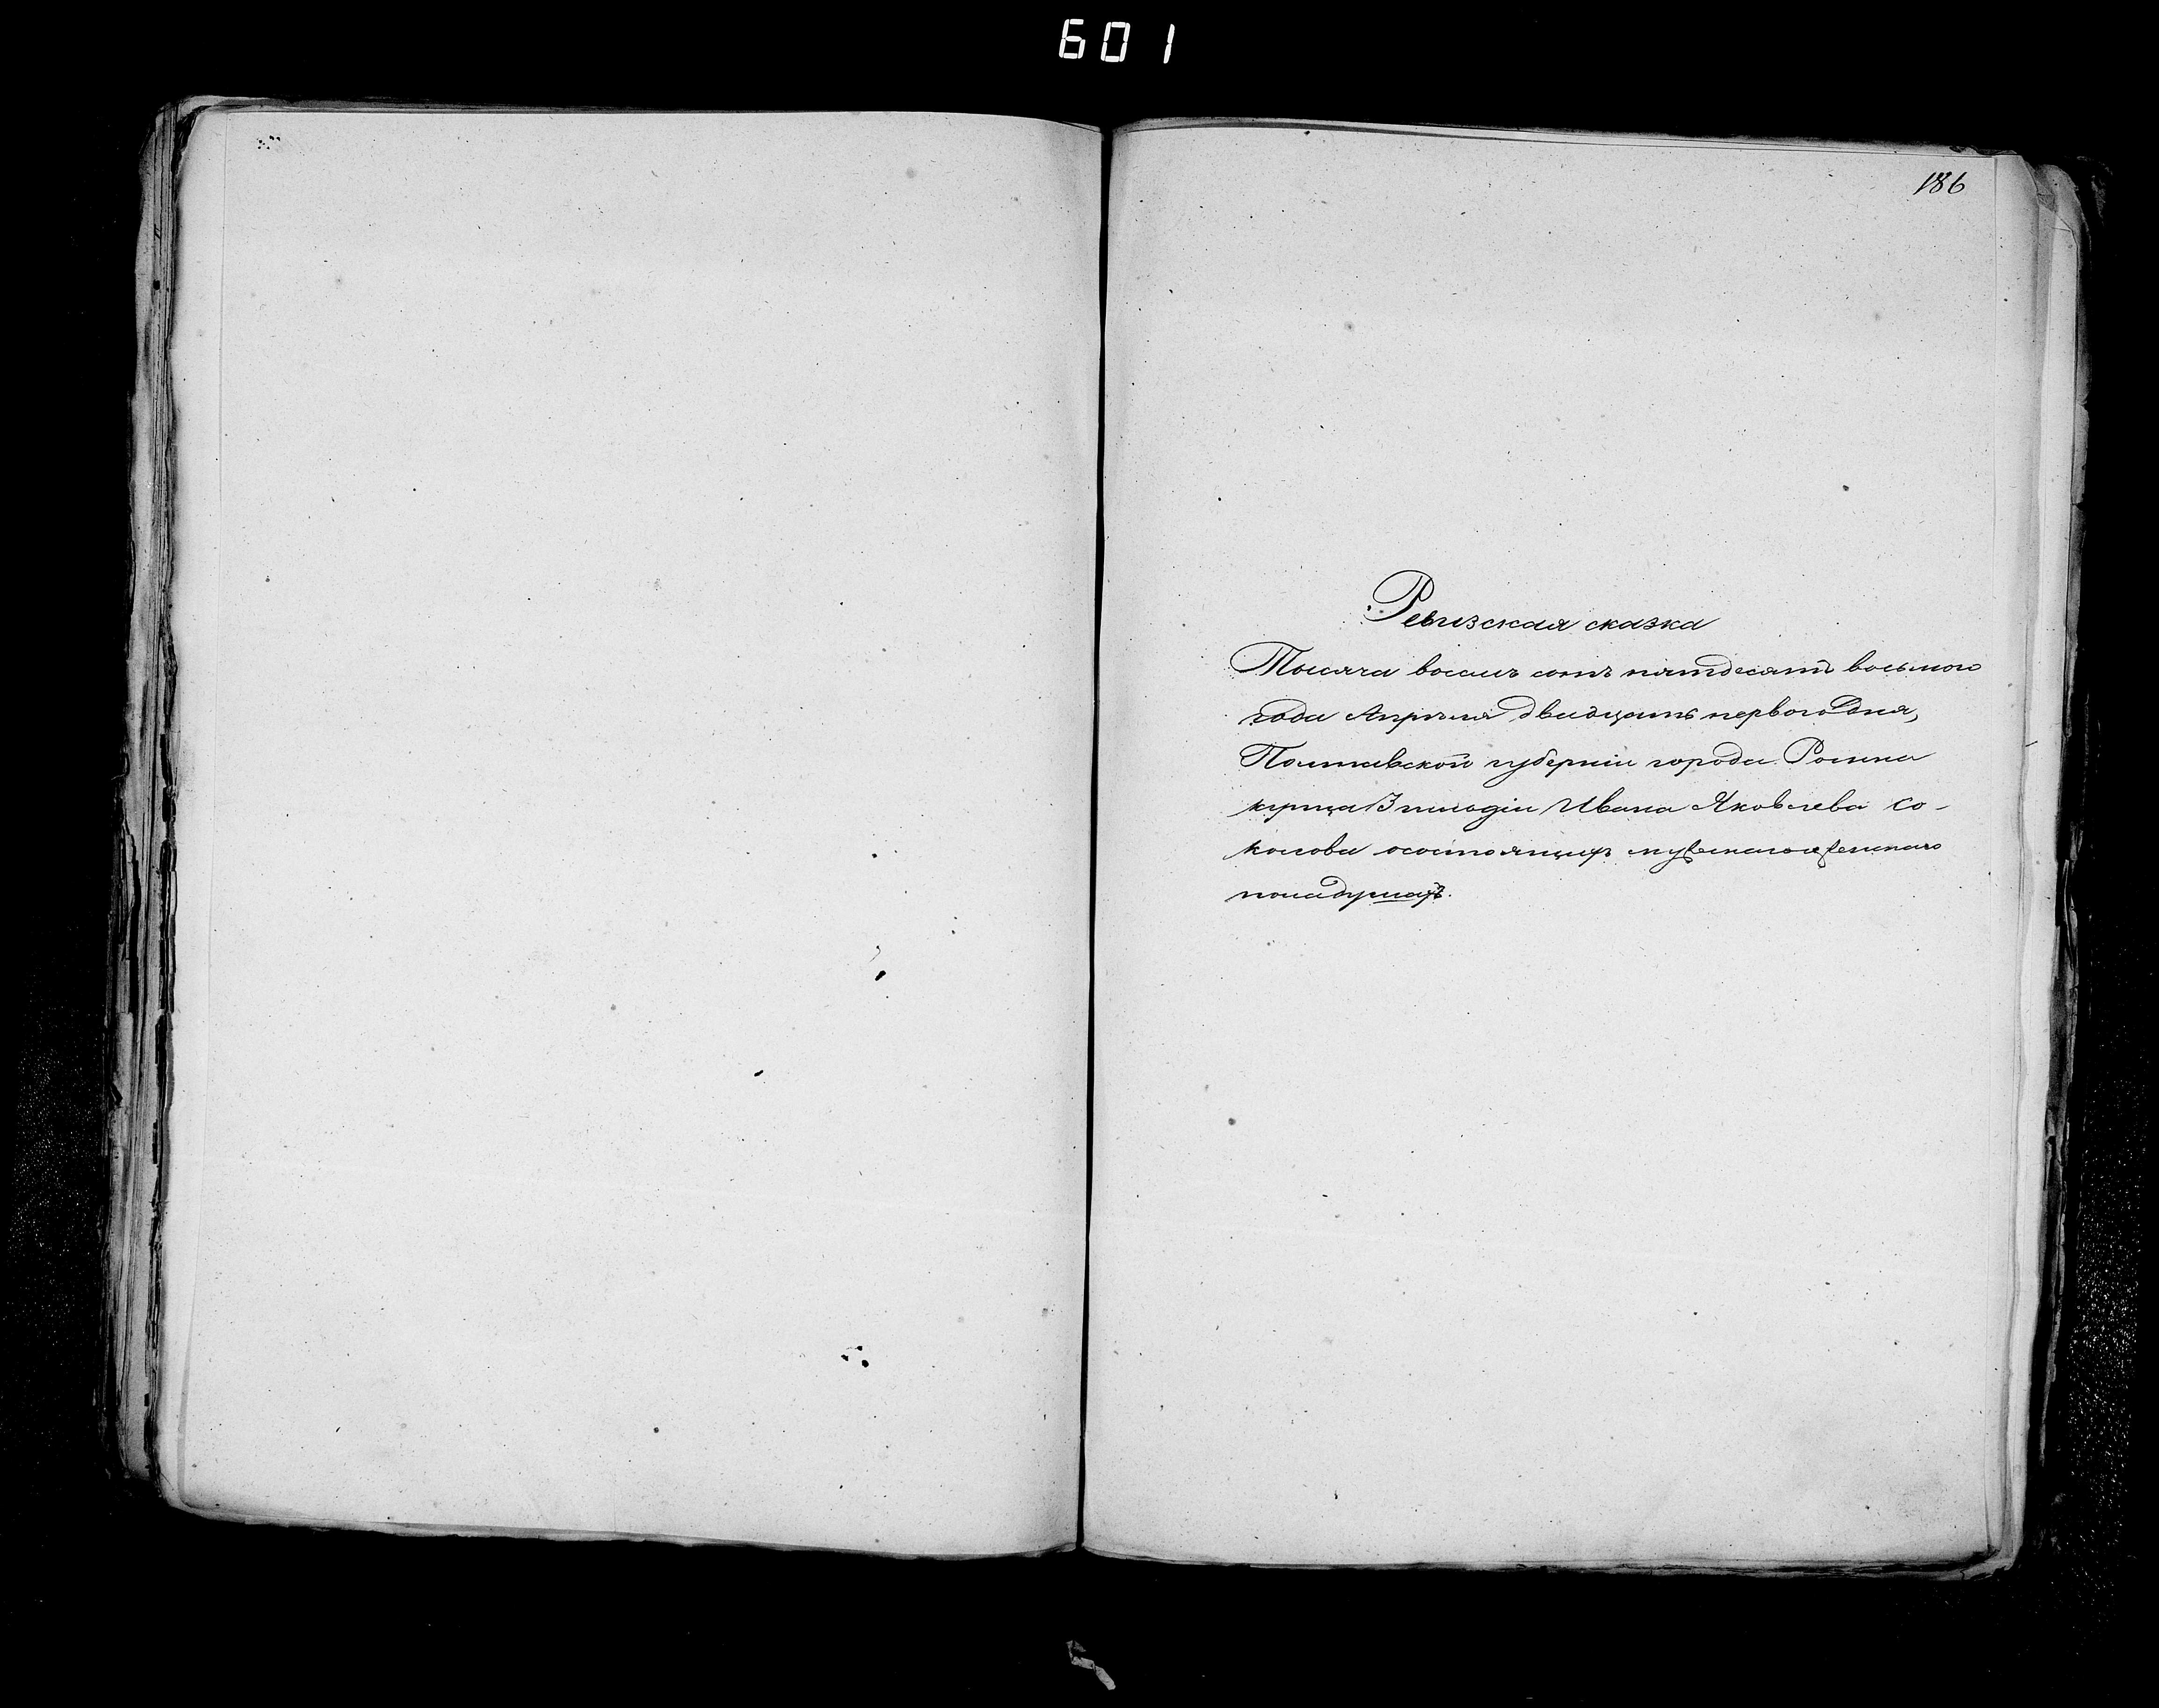 601
186
Ревизская сказка
Тысяча восемь сотъ пятдесятъ восьмого
года Апрѣля двадцать перваго дня,
Полтавской губерніи города Ромна
купца 3 гильдіи Ивана Яковлева Со-
колова осостоящихъ мужескаго и женскаго
пола душахъ.